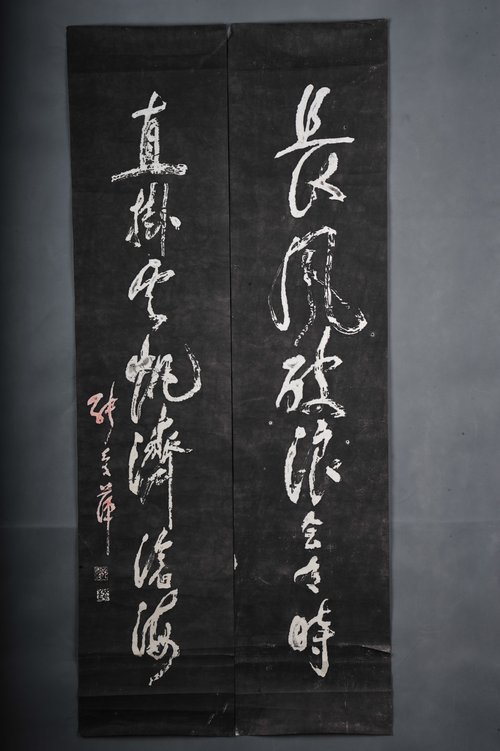 長風破浪会有時
直掛云帆濟滄海